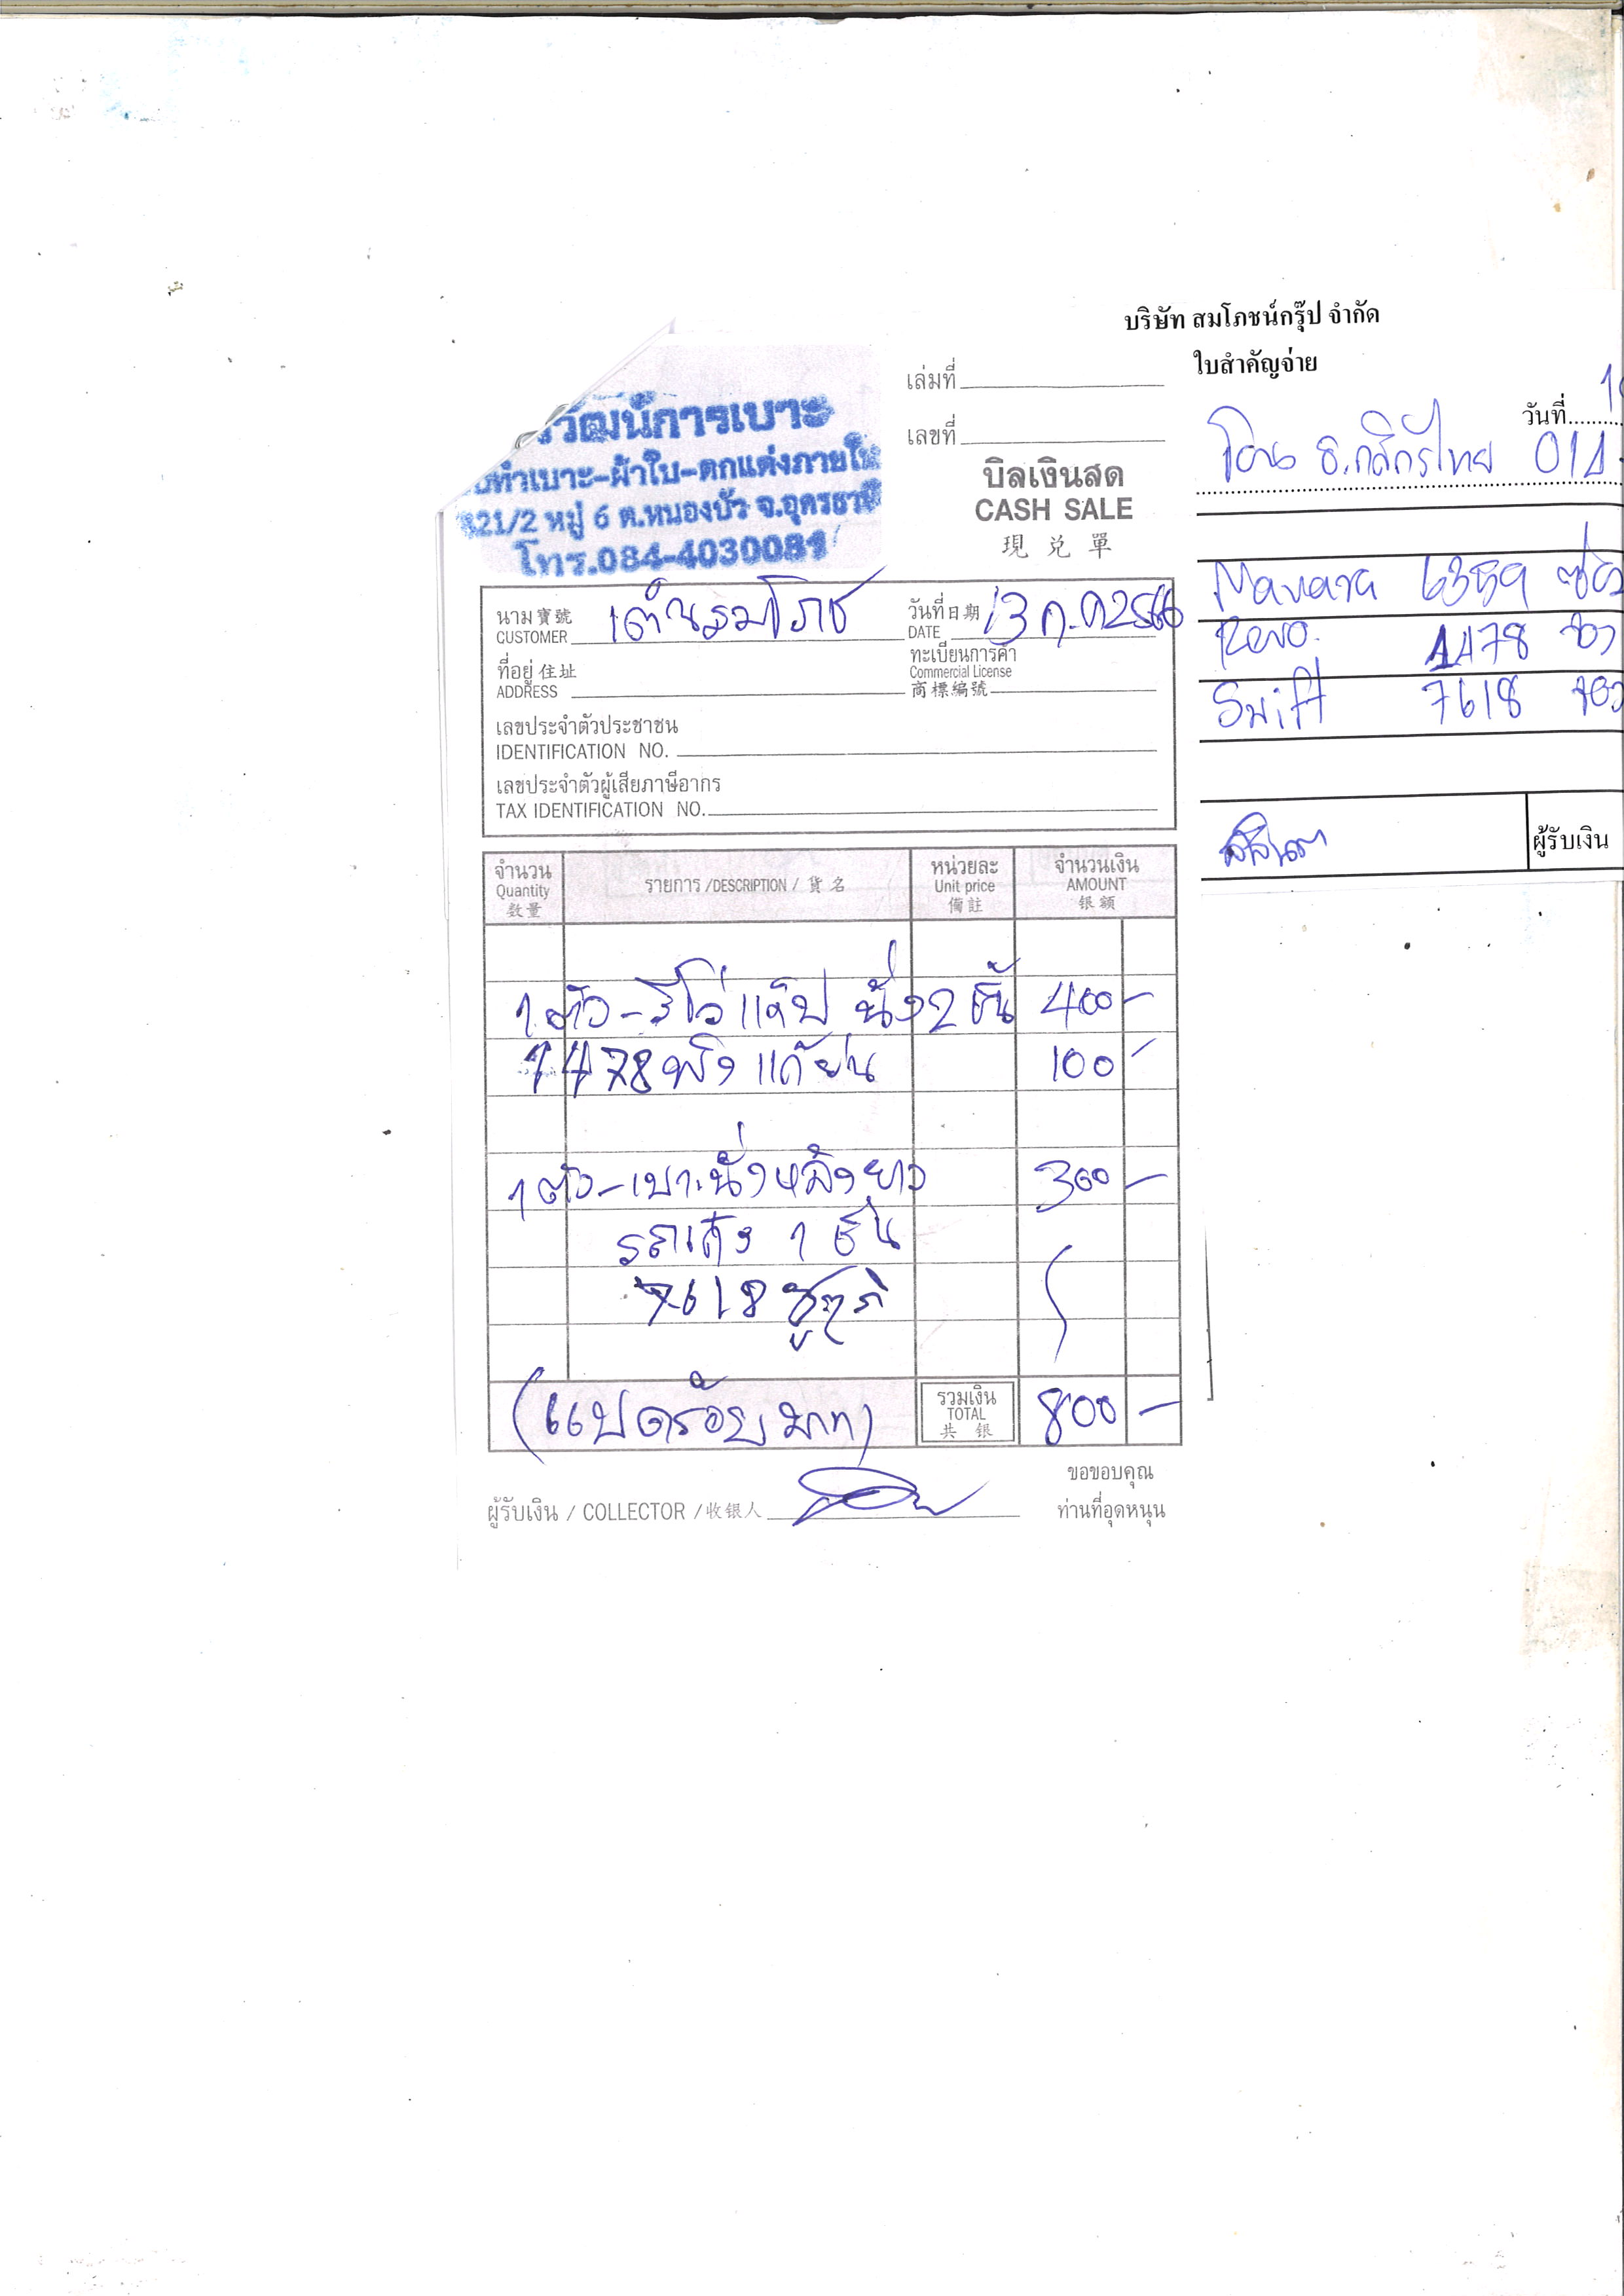 วัฒน์การเบาะ
ทำเบาะ-ผ้าใบ-ตกแต่งภายใน
321/2 หมู่ 6 ต.หนองบัว จ.อุดรธานี
โทร.084-4030081
เล่มที่
เลขที่
บิลเงินสด
CASH SALE
現 兌 單
นาม寶號
CUSTOMER เต็นสมโภช
วันที่日期
DATE 13 ก.ค 2566
ที่อยู่ 住址
ADDRESS
ทะเบียนการค้า
Commercial License
商標編號
เลขประจำตัวประชาชน
IDENTIFICATION NO.
เลขประจำตัวผู้เสียภาษีอากร
TAX IDENTIFICATION NO.
จำนวน รายการ /DESCRIPTION / 貨 名 หน่วยละ จำนวนเงิน
Quantity Unit price AMOUNT
数量 備註 银额
1 ตัว - รีโว่ แค็ป นั่ง 2 ชิ้น 400 -
1478 พิง แก้ย่น 100 -
1 ตัว - เบาะนั่งหลังยาว 300 -
รถเก๋ง 1 ชิ้น
7618
(แปดร้อยบาท) รวมเงิน 800 -
TOTAL
共 银
ผู้รับเงิน / COLLECTOR /收银人
ขอขอบคุณ
ท่านที่อุดหนุน
บริษัท สมโภชน์กรุ๊ป จำกัด
ใบสำคัญจ่าย
วันที่
โอน ธ.กสิกรไทย 01
Navara 6389
Revo. 1478
Swift 7618
ผู้รับเงิน